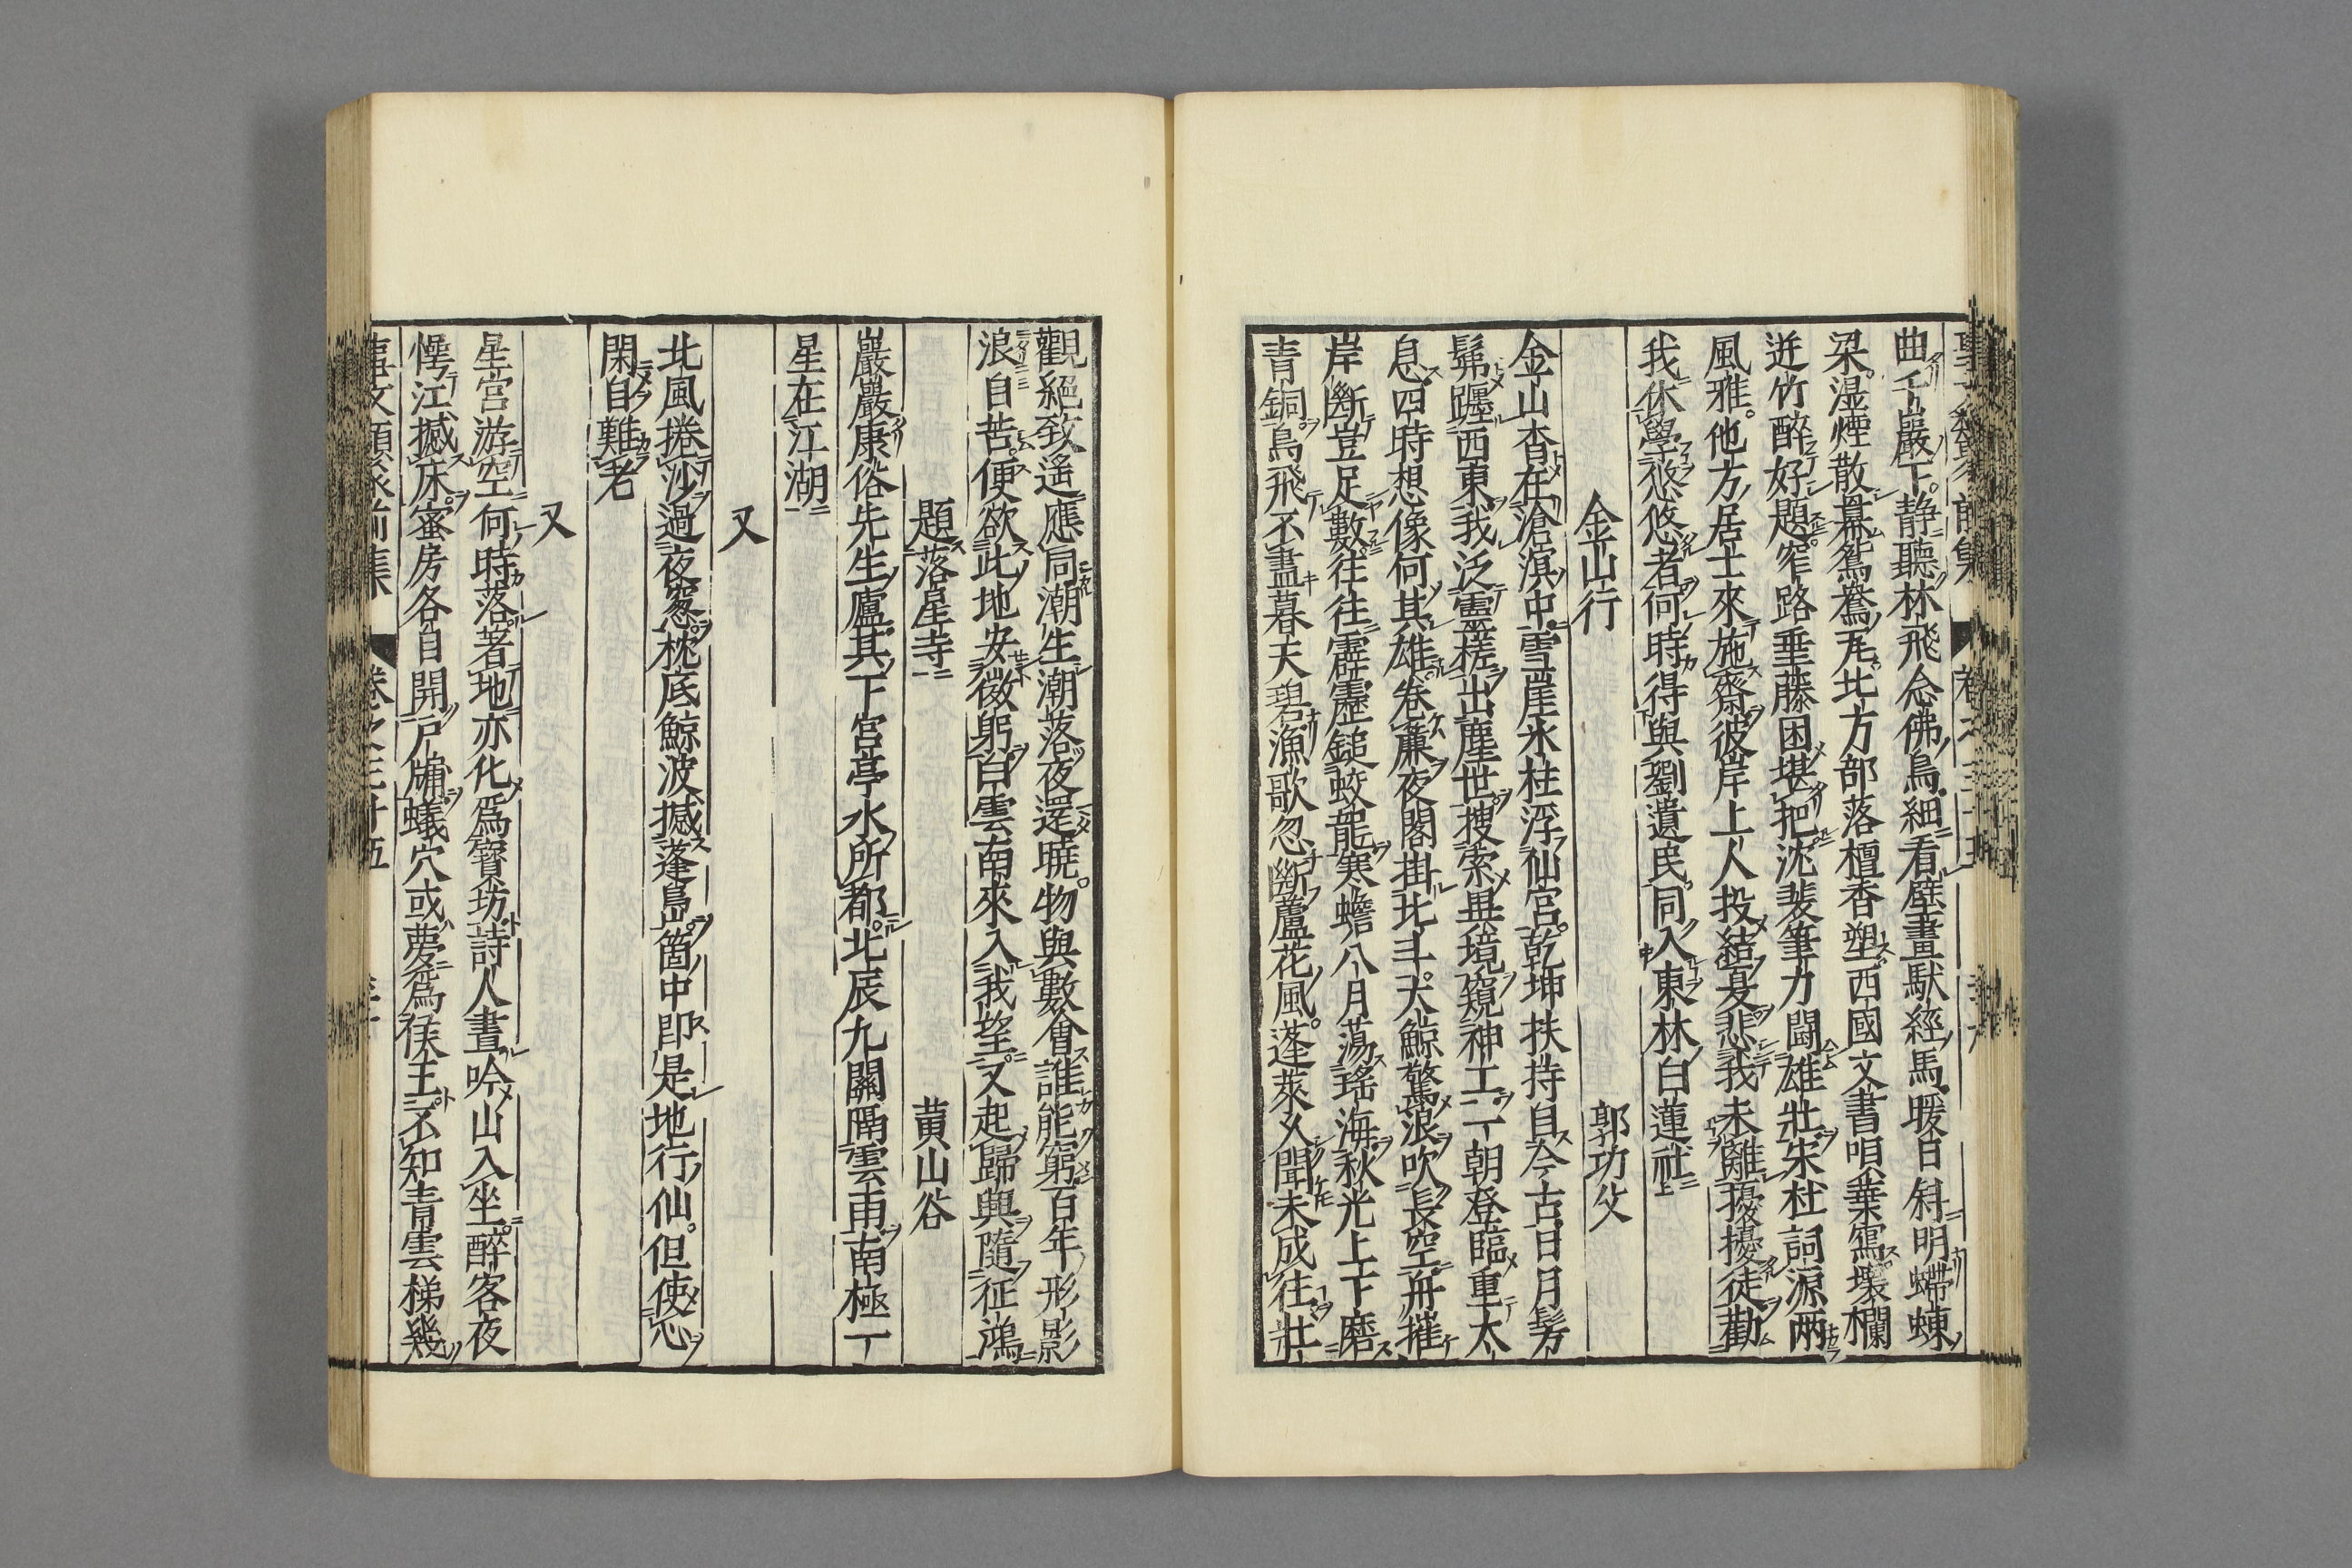 曲千巖下静聽林飛念佛鳥細看壁畫馱經馬暖日斜明螮蝀
梁湿煙散幕鴛鴦瓦北方部落檀香塑西國文書唄葉寫壞欄
迸竹醉好題窄路垂藤困堪把沈裴筆力鬪雄壯宋杜詞源两
風雅他方居士來施齋彼岸上人投結夏悲我未離擾擾徒勸
我休學悠悠者何時得與劉遺民同入東林白蓮社
金山行 郭功父
金山杳在滄溟中雪崖氷柱浮仙宮乾坤扶持自今古日月髣
髴躔西東我泛靈槎出塵世搜索異境窺神工一朝登臨重太
息四時想像何其雄卷簾夜閣掛北斗大鯨駕浪吹長空舟摧
岸斷豈足數往往霹靂鎚蛟龍寒蟾八月蕩瑤海秋光上下磨
青銅鳥飛不盡暮天碧漁歌忽斷蘆花風蓬萊久聞未成往壯
觀絕致遙應同潮生潮落夜還曉物與數會誰能窮百年形影
浪自苦便欲此地安微躬白雲南來入我望又起歸興隨征鴻
題落星寺 黄山谷
巖巖康俗先生廬其下宮亭水所都北辰九關隔雲雨南極一
星在江湖
又
北風捲沙過夜窓枕底鯨波撼蓬島箇中即是地行仙但使心
閑自難老
又
星宮游空何時落著地亦化爲寶坊詩人晝吟山入坐醉客夜
愕江撼床蜜房各自開戸牖蟻穴或夢爲侯王不知青雲梯幾
事文類聚前集 卷之三十五